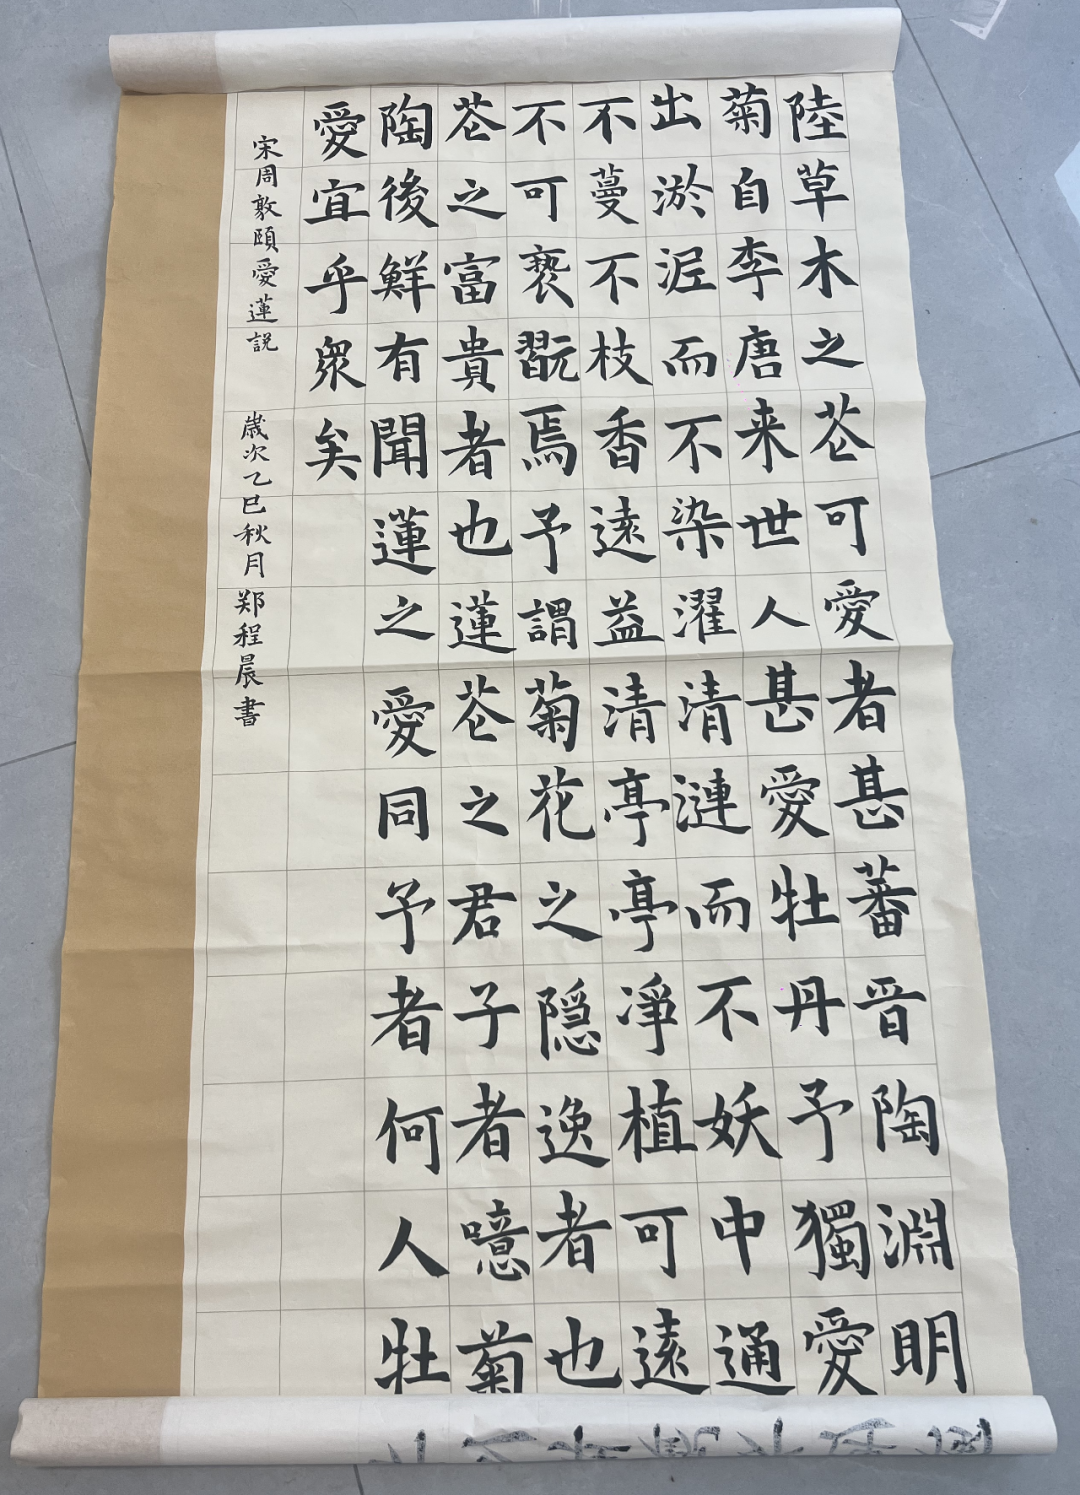 陸草木之芲可愛者甚蕃晋陶淵明
菊自李唐来世人甚愛牡丹予獨愛
出淤泥而不染濯清漣而不妖中通
不蔓不枝香遠益清亭亭凈植可遠
不可褻翫焉予謂菊花之隠逸者也
芲之富貴者也蓮芲之君子者噫菊
陶後鮮有聞蓮之愛同予者何人牡
愛宜乎衆矣
宋周敦頤愛蓮説 歳次乙巳秋月 郑程晨書